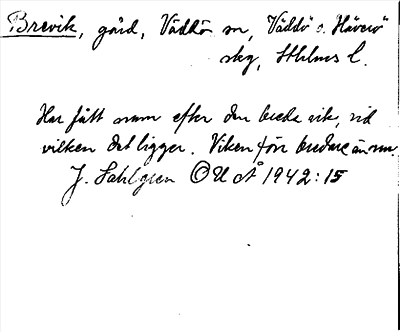 Brevik, gård, Väddö sn, Väddö o. Häverö
skg, Sthlms l.
Har fått namn efter den breda vik, vid
vilken det ligger. Viken förr bredare än nu.
J. Sahlgren ⓒ U å 1942:15